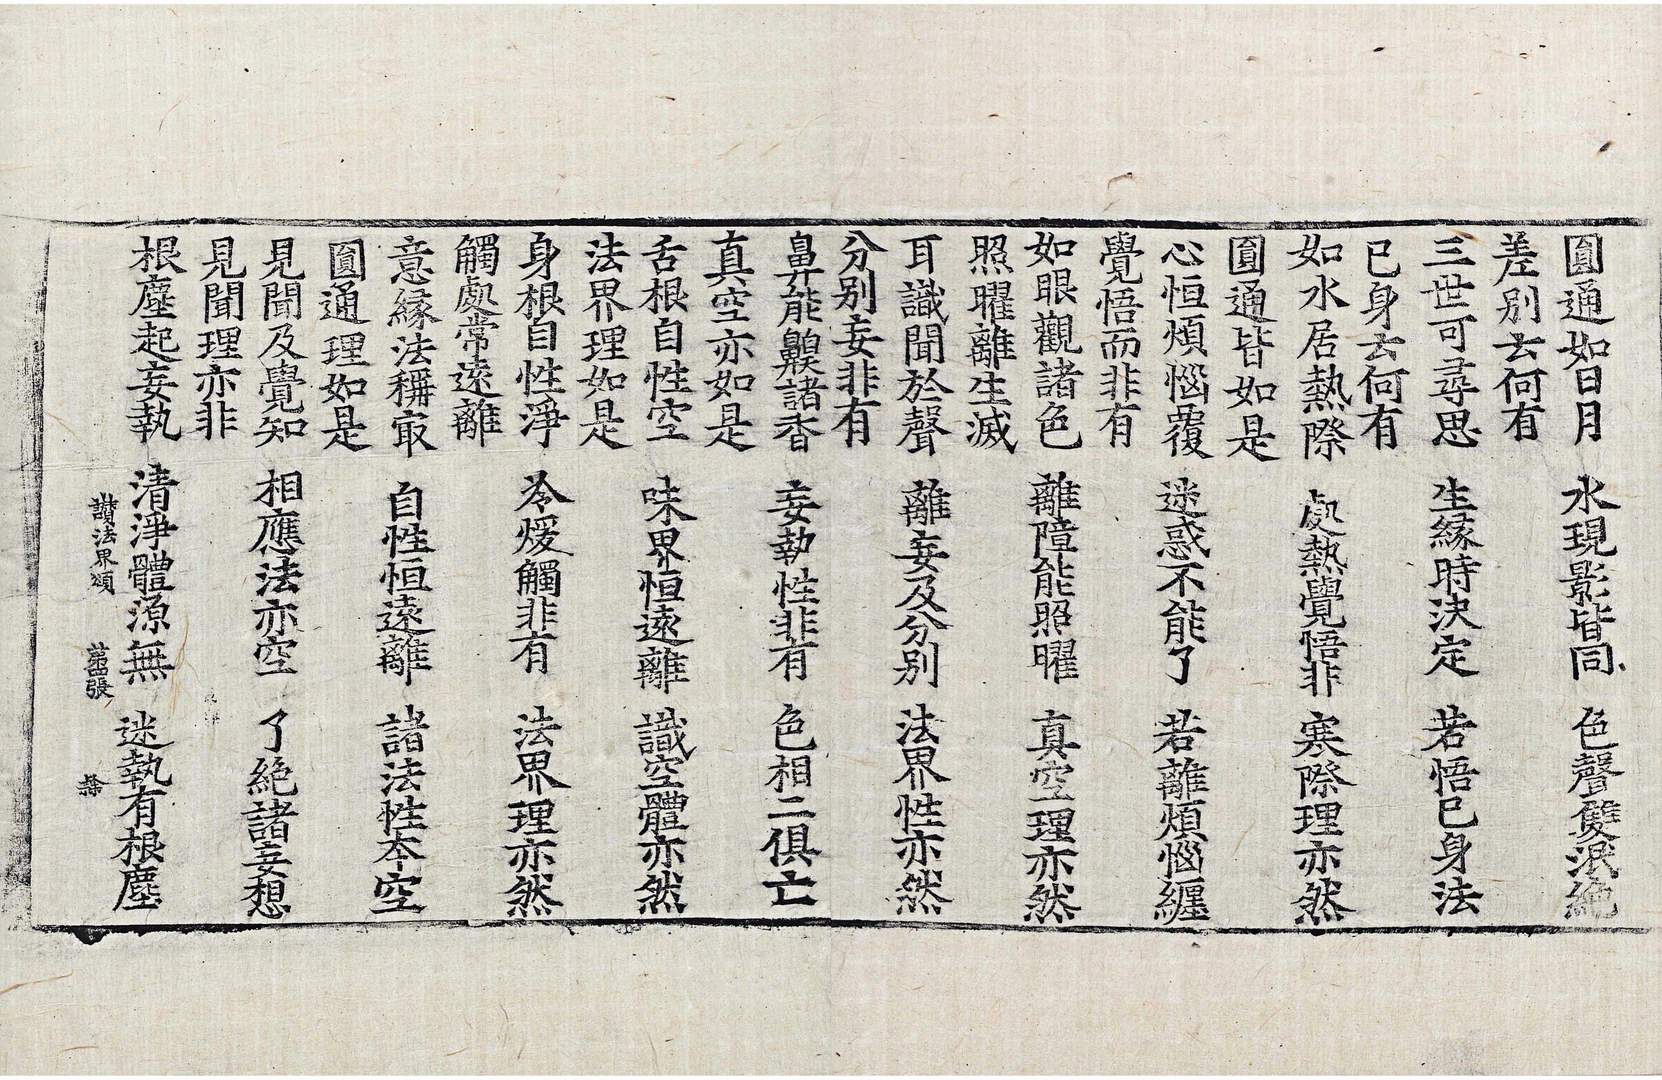 圓通如日月　水現影皆同　色聲雙泯絶
差別云何有
三世可尋思　生緣時決定　若悟已身法
已身云何有
如水居熱際　處熱覺悟非　寒際理亦然
圓通皆如是
心恒煩惱覆　迷惑不能了　若離煩惱纏
覺悟而非有
如眼觀諸色　離障能照曜　真空理亦然
照曜離生滅
耳識聞於聲　離妄及分別　法界性亦然
分別妄非有
鼻能齅諸香　妄執性非有　色相二俱亡
真空亦如是
舌根自性空　味界恒遠離　識空體亦然
法界理如是
身根自性淨　冷煖觸非有　法界理亦然
觸處常遠離
意緣法稱㝡　自性恒遠離　諸法性夲空
圓通理如是
見聞及覺知　相應法亦空　了絶諸妄想
見聞理亦非
根塵起妄執　清淨體源無　迷執有根塵
讚法界頌　張